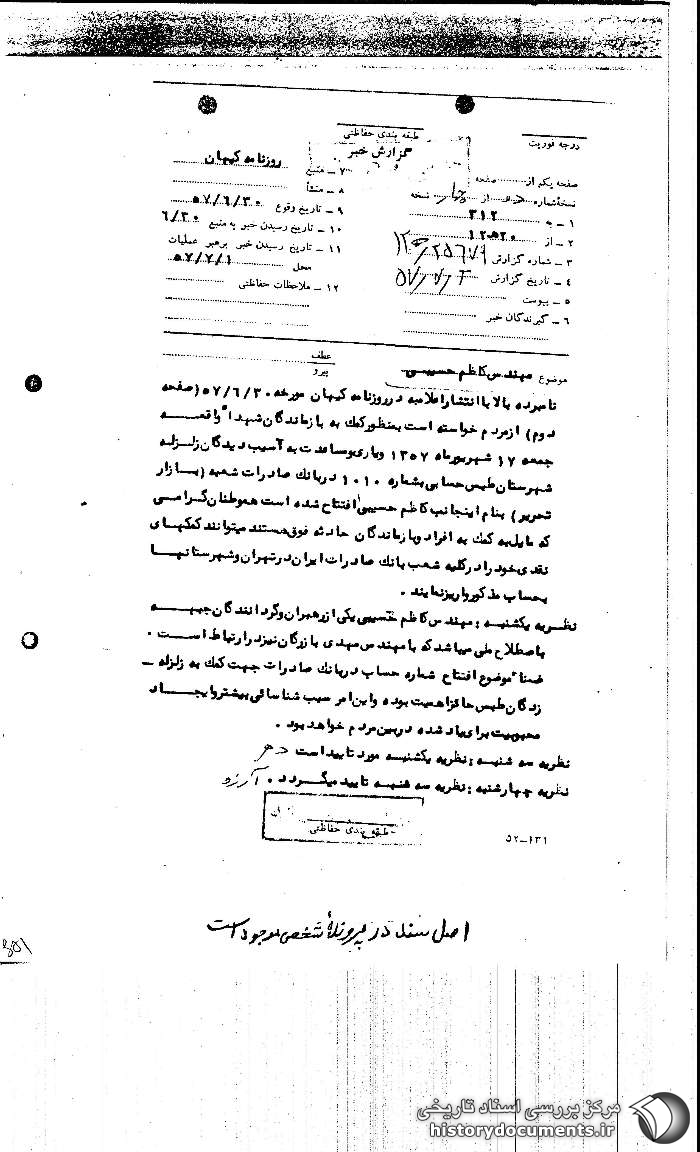 طبقه بندی حفاظتی
درجه فوریت
گزارش خبر
صفحه یکم از صفحه
نسخه شماره از چهار نسخه
۱ ـ به ۳۱۲
۲ ـ از ۱۲ه۲۰
۳ ـ شماره گزارش ۲۵۶۷۹
۴ ـ تاریخ گزارش ۵۷/۷/۴
۵ ـ پیوست
۶ ـ گیرندگان خبر
۷ ـ منبع روزنامه کیهان
۸ ـ منشأ
۹ ـ تاریخ وقوع ۵۷/۶/۳۰
۱۰ ـ تاریخ رسیدن خبر به منبع ۶/۳۰
۱۱ ـ تاریخ رسیدن خبر برهبر عملیات
محل ۵۷/۷/۱
۱۲ ـ ملاحظات حفاظتی
موضوع مهندس کاظم حسیبی
عطف
پیرو
نامبرده بالا با انتشار اعلامیه در روزنامه کیهان مورخه ۵۷/۶/۳۰ (صفحه
دوم) از مردم خواسته است بمنظور کمک به بازماندگان شهدا واقعه
جمعه ۱۷ شهریور ماه ۱۳۵۷ و یاری و مساعدت به آسیب دیدگان زلزله
شهرستان طبس حسابی بشماره ۱۰۱۰ در بانک صادرات شعبه (بازار
تحریر) بنام اینجانب کاظم حسیبی افتتاح شده است هموطنان گرامی
که مایل به کمک به افراد و بازماندگان حادثه فوق هستند میتوانند کمکهای
نقدی خود را در کلیه شعب بانک صادرات ایران در تهران و شهرستانها
بحساب مذکور واریز نمایند .
نظریه یکشنبه : مهندس کاظم حسیبی یکی از رهبران و گردانندگان جبهه
باصطلاح ملی میباشد که با مهندس مهدی بازرگان نیز در ارتباط است .
ضمنا موضوع افتتاح شماره حساب در بانک صادرات جهت کمک به زلزله ـ
زدگان طبس حائز اهمیت بوده و این امر سبب شناسائی بیشتر و ایجاد
محبوبیت برای یاد شده در بین مردم خواهد بود .
نظریه سه شنبه : نظریه یکشنبه مورد تایید است
نظریه چهارشنبه : نظریه سه شنبه تایید میگردد . آرزو
طبقه بندی حفاظتی
۵۲-۱۳۱
اصل سند در پرونده شخصی موجود است
مرکز بررسی اسناد تاریخی
historydocuments.ir